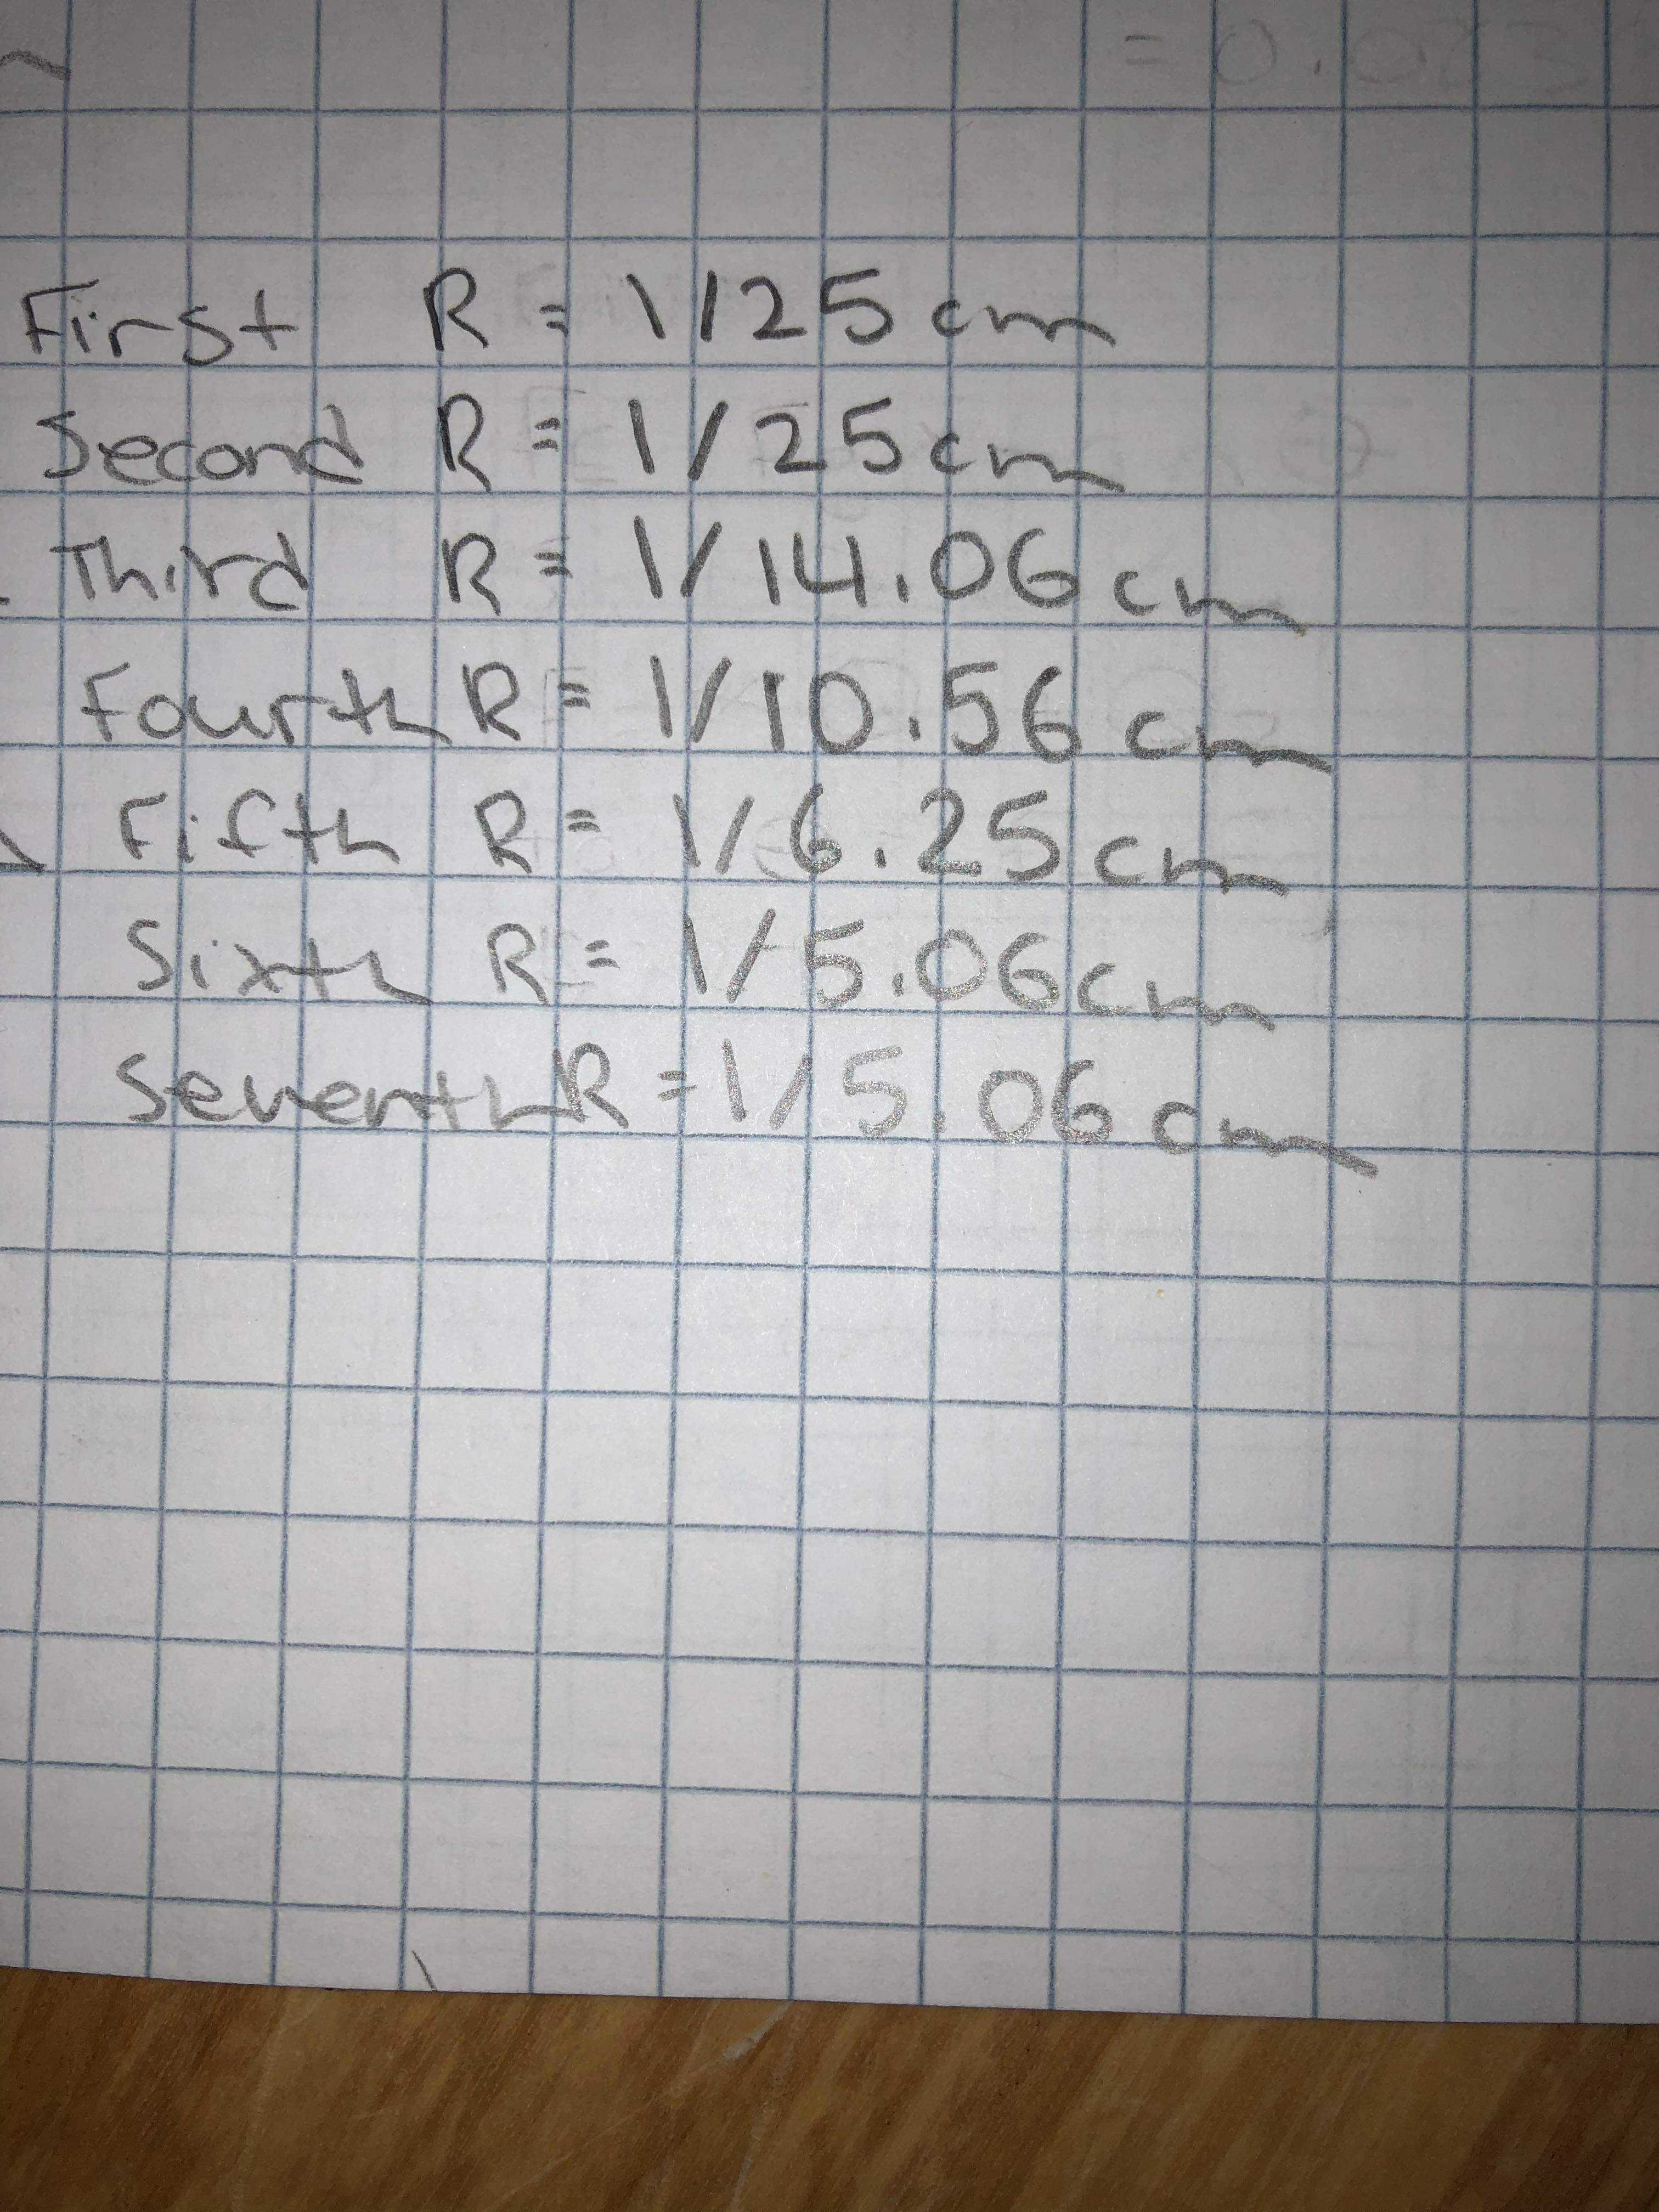 = 0.0
First R = 1/25 cm
Second R = 1/25 cm
Third R = 1/14.06 cm
Fourth R = 1/10.56 cm
Fifth R = 1/6.25 cm
Sixth R = 1/5.06 cm
Seventh R = 1/5.06 cm